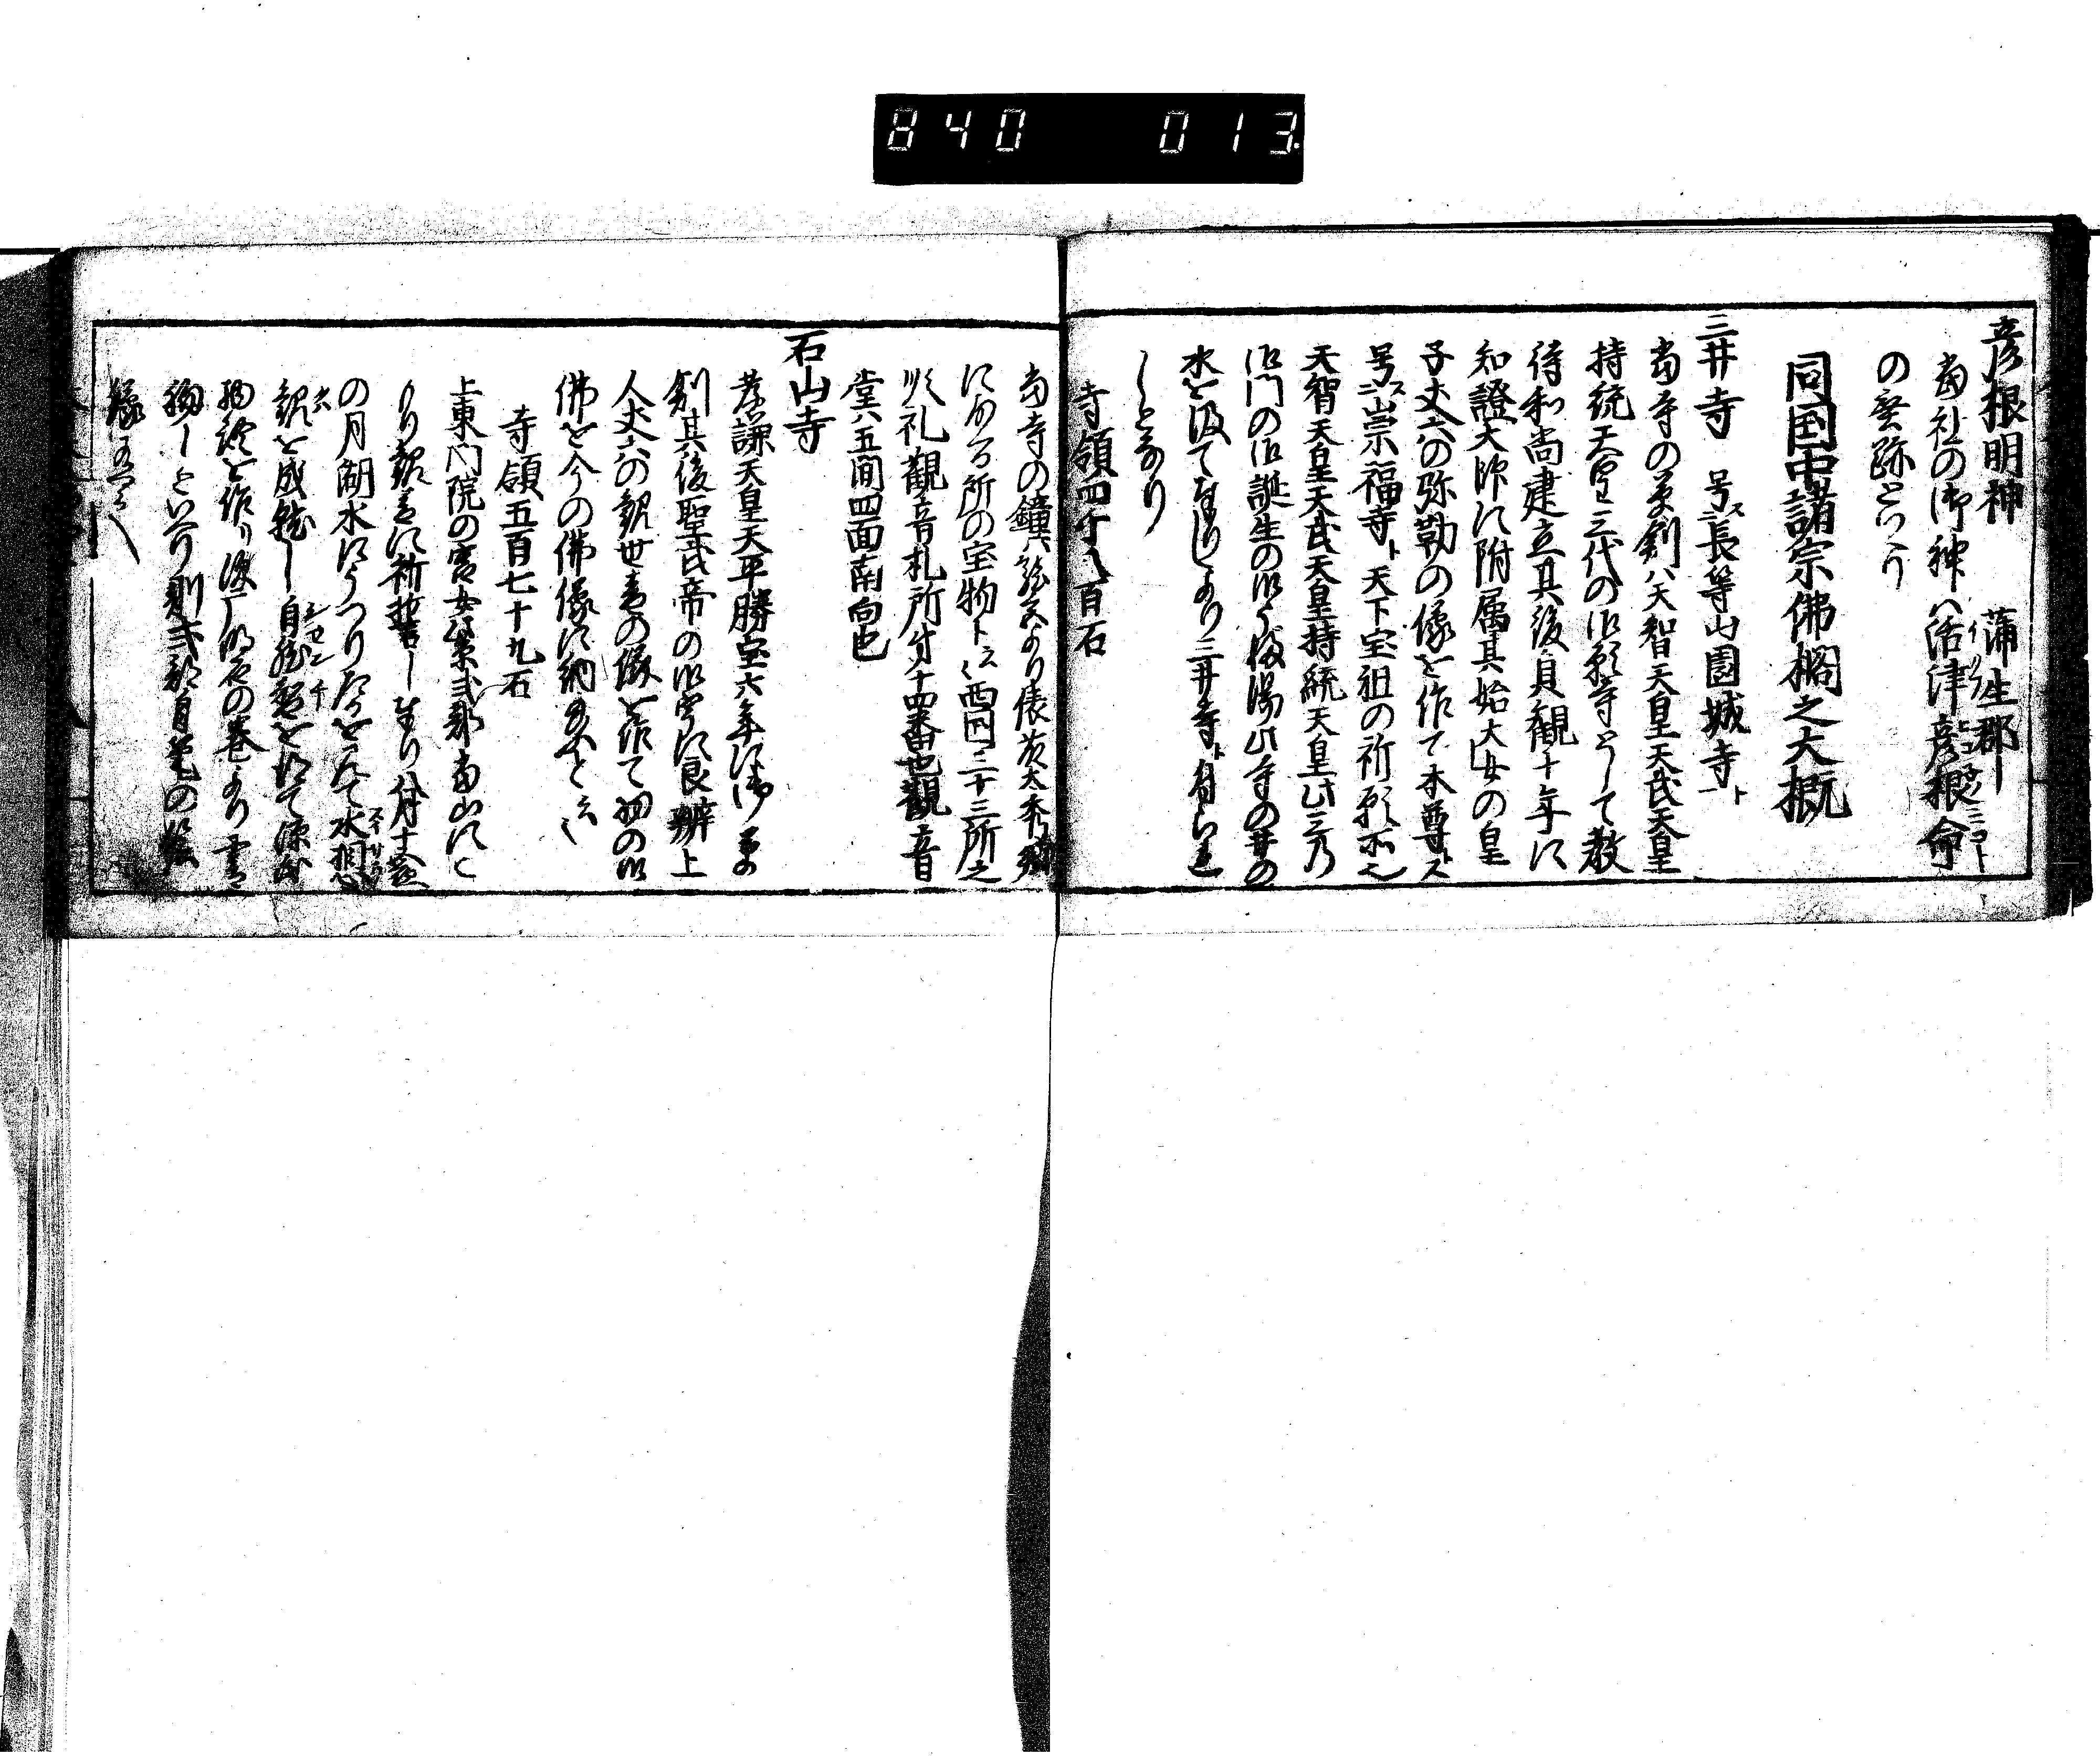 840 013
彦根明神 蒲生郡
當社の御神ハ活津彦根命
の垂跡といへり
同国中諸宗佛閣之大概
三井寺 号ス長等山園城寺ト
當寺の草創ハ天智天皇天武天皇
持統天皇三代の御願寺として教
待和尚建立其後貞観十年に
知證大師に附属其始大女の皇
子丈六の弥勒の像を作て本尊トス
号ス崇福寺ト天下宝祖の祈願所也
天智天皇天武天皇持統天皇此三乃
御門の御誕生の御うぶ湯此寺の井の
水を汲てなしより三井寺ト有られ
しとなり
寺領四千八百石
當寺の鐘ハ龍宮より俵藤太秀郷
にかゝる所の宝物ト云々西国三十三所之
順礼觀音札所第十四番也觀音
堂ハ五間四面南向也
石山寺
孝謙天皇天平勝宝六年に御草
創其後聖武帝の御宇に良辨上
人丈六の観世音の像を作て初の御
佛を今の佛像に納給ふと云々
寺領五百七十九石
上東門院の官女紫式部當山にこ
もり観音に祈誓しけり八月十五夜
の月湖水にうつりたるを見て水想
観を成就し自然智を得て源氏
物語を作り須广明石の巻より書
初しといへり則式部自筆の